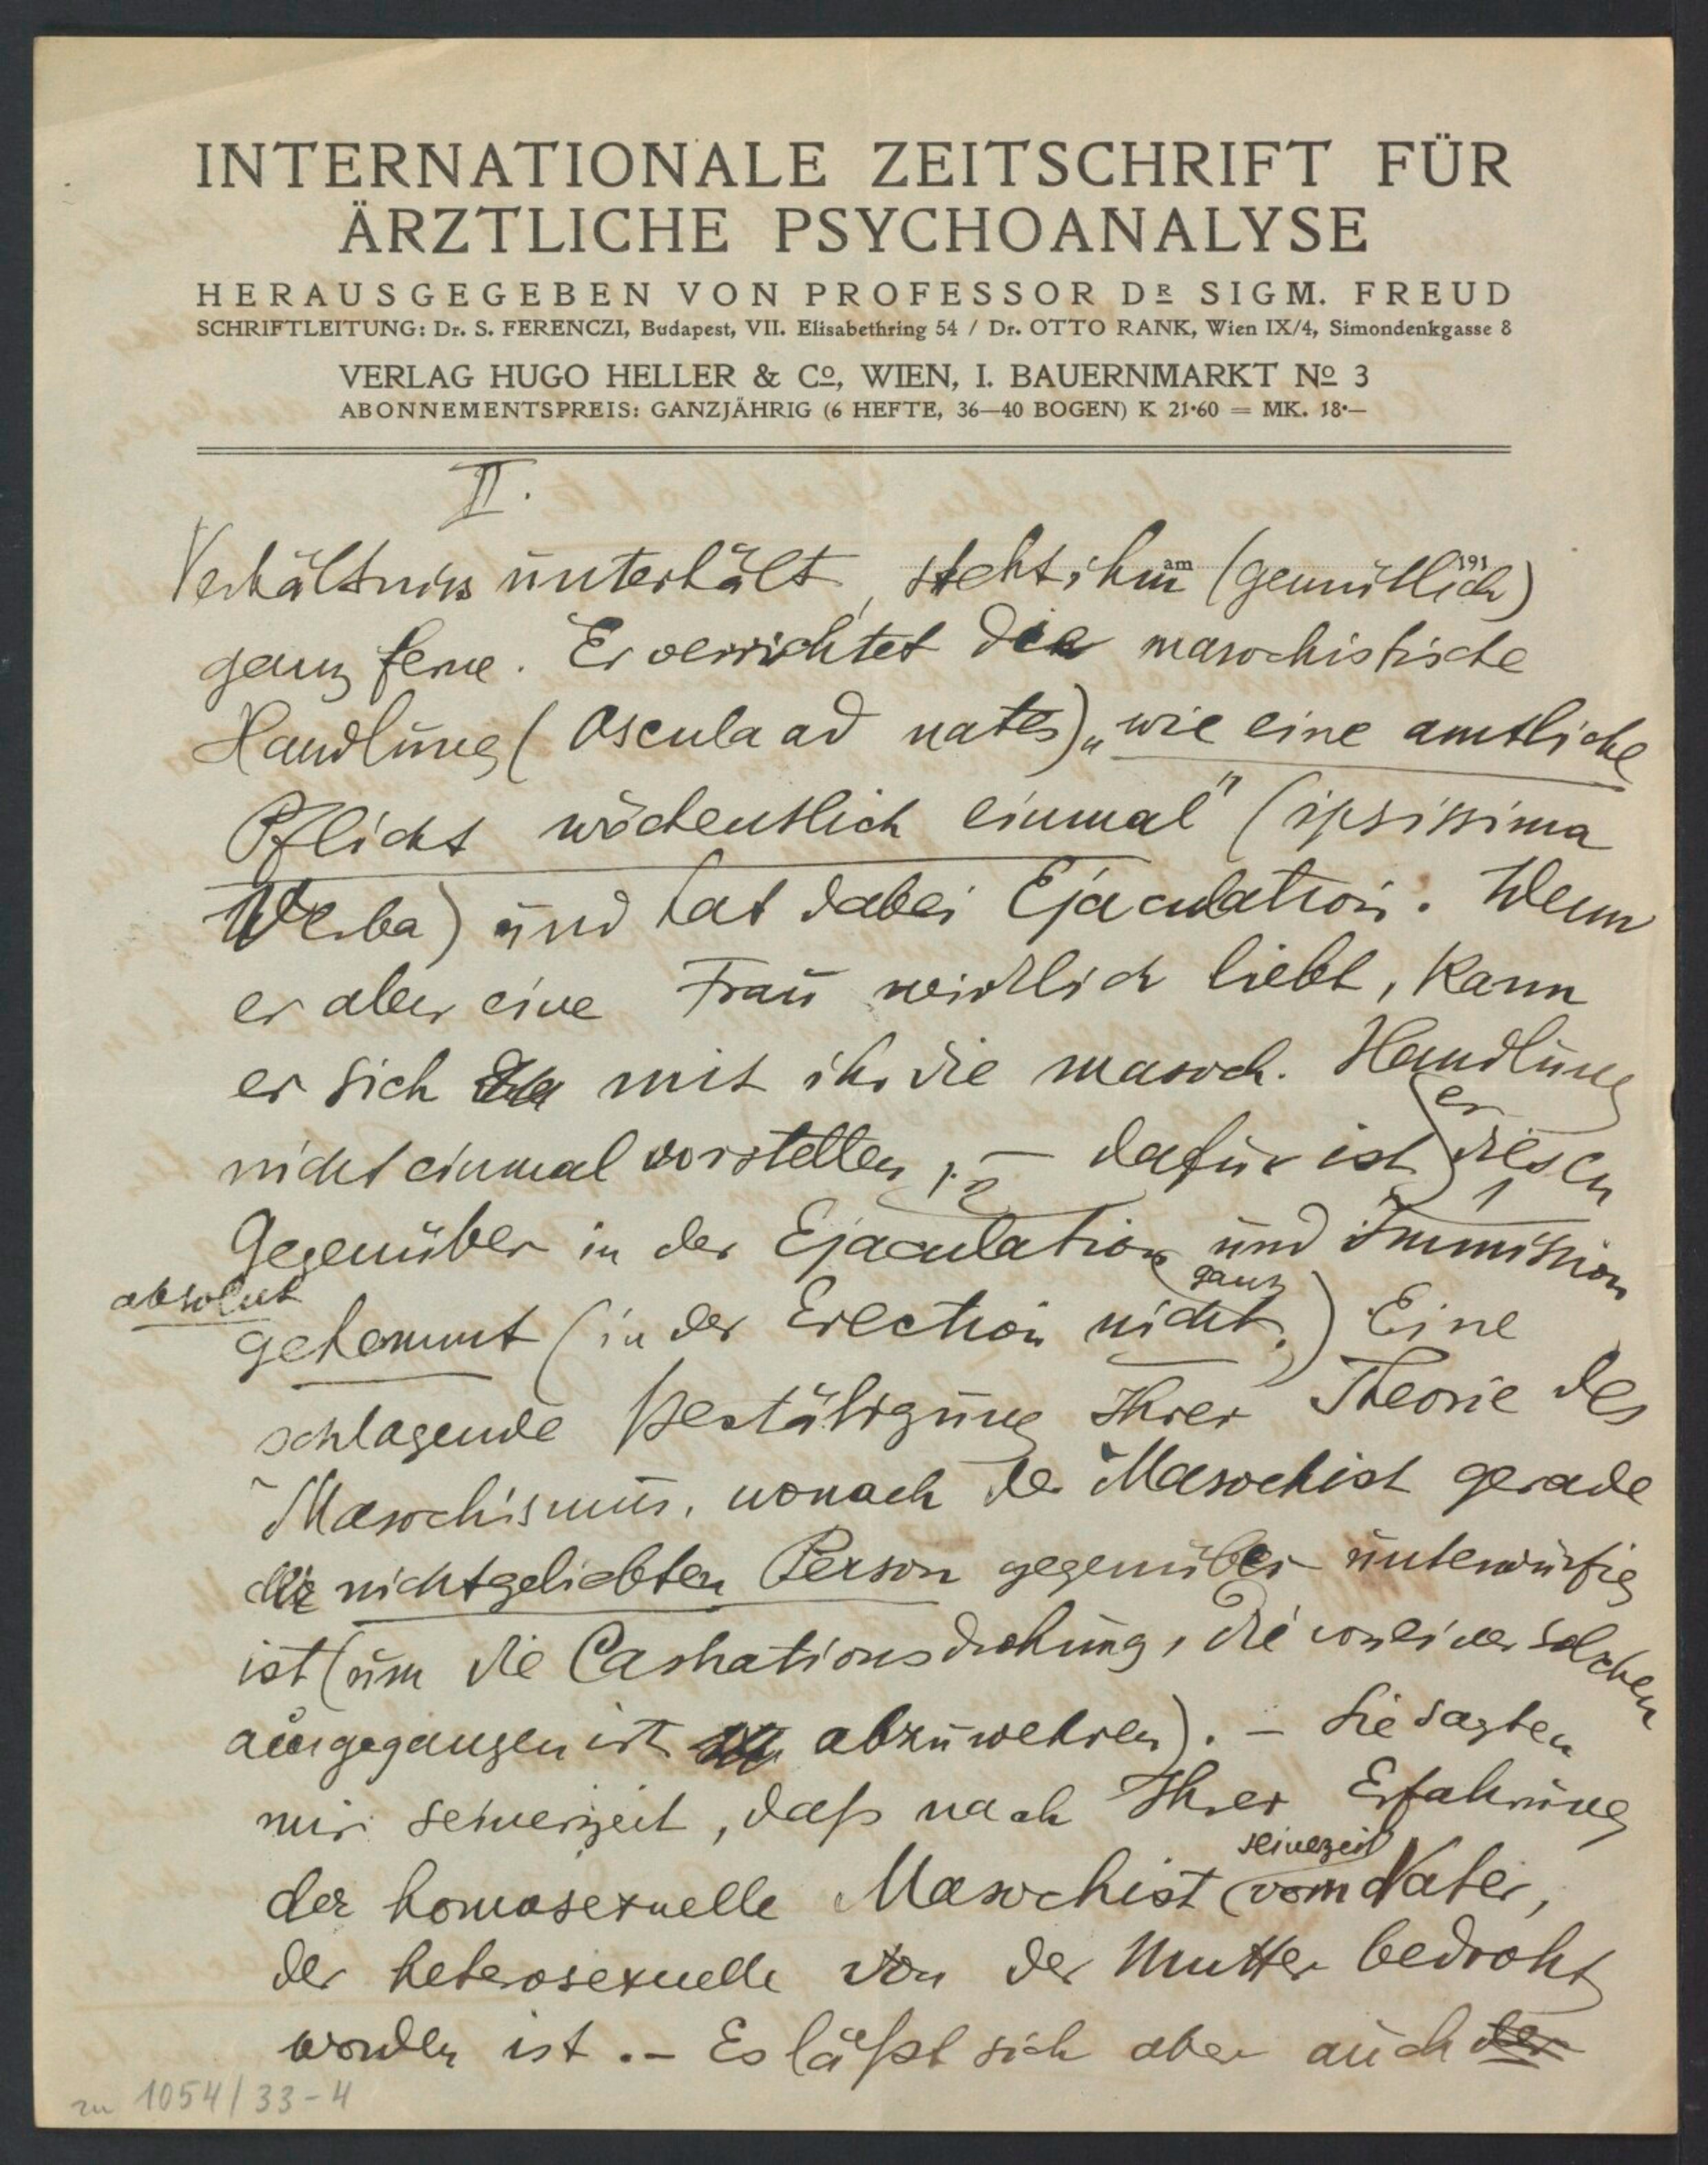 INTERNATIONALE ZEITSCHRIFT FÜR
ÄRZTLICHE PSYCHOANALYSE
HERAUSGEGEBEN VON PROFESSOR DR SIGM. FREUD
SCHRIFTLEITUNG: Dr. S. FERENCZI, Budapest, VII. Elisabethring 54 / Dr. OTTO RANK, Wien IX/4, Simondenkgasse 8
VERLAG HUGO HELLER & Co, WIEN, I. BAUERNMARKT No 3
ABONNEMENTSPREIS: GANZJÄHRIG (6 HEFTE, 36—40 BOGEN) K 21·60 = MK. 18·—
II.
am 191
Verhältniss unterhält, steht ihm (gemütlich)
ganz ferne. Er verrichtet die masochistische
Handlung (Oscula ad nates) „wie eine amtliche
Pflicht wöchentlich einmal" (ipsissima
Verba) und hat dabei Ejaculation. Wenn
er aber eine Frau wirklich liebt, kann
er sich mit ihr die masoch. Handlung
nicht einmal vorstellen, – dafür ist er diesen
Gegenüber in der Ejaculation und Immission
absolut
gehemmt (in der Erection nicht ganz.) Eine
schlagende Bestätigung Ihrer Theorie des
Masochismus, wonach der Masochist gerade
der nichtgeliebten Person gegenüber unterwürfig
ist (um die Castrationsdrohung, die von einer solchen
ausgegangen ist abzuwehren). – Sie sagten
mir seinerzeit, daß nach Ihrer Erfahrung
der homosexuelle Masochist seinerzeit vom Vater,
der heterosexuelle von der Mutter bedroht
worden ist. – Es läßt sich aber auch der
zu 1054/33-4